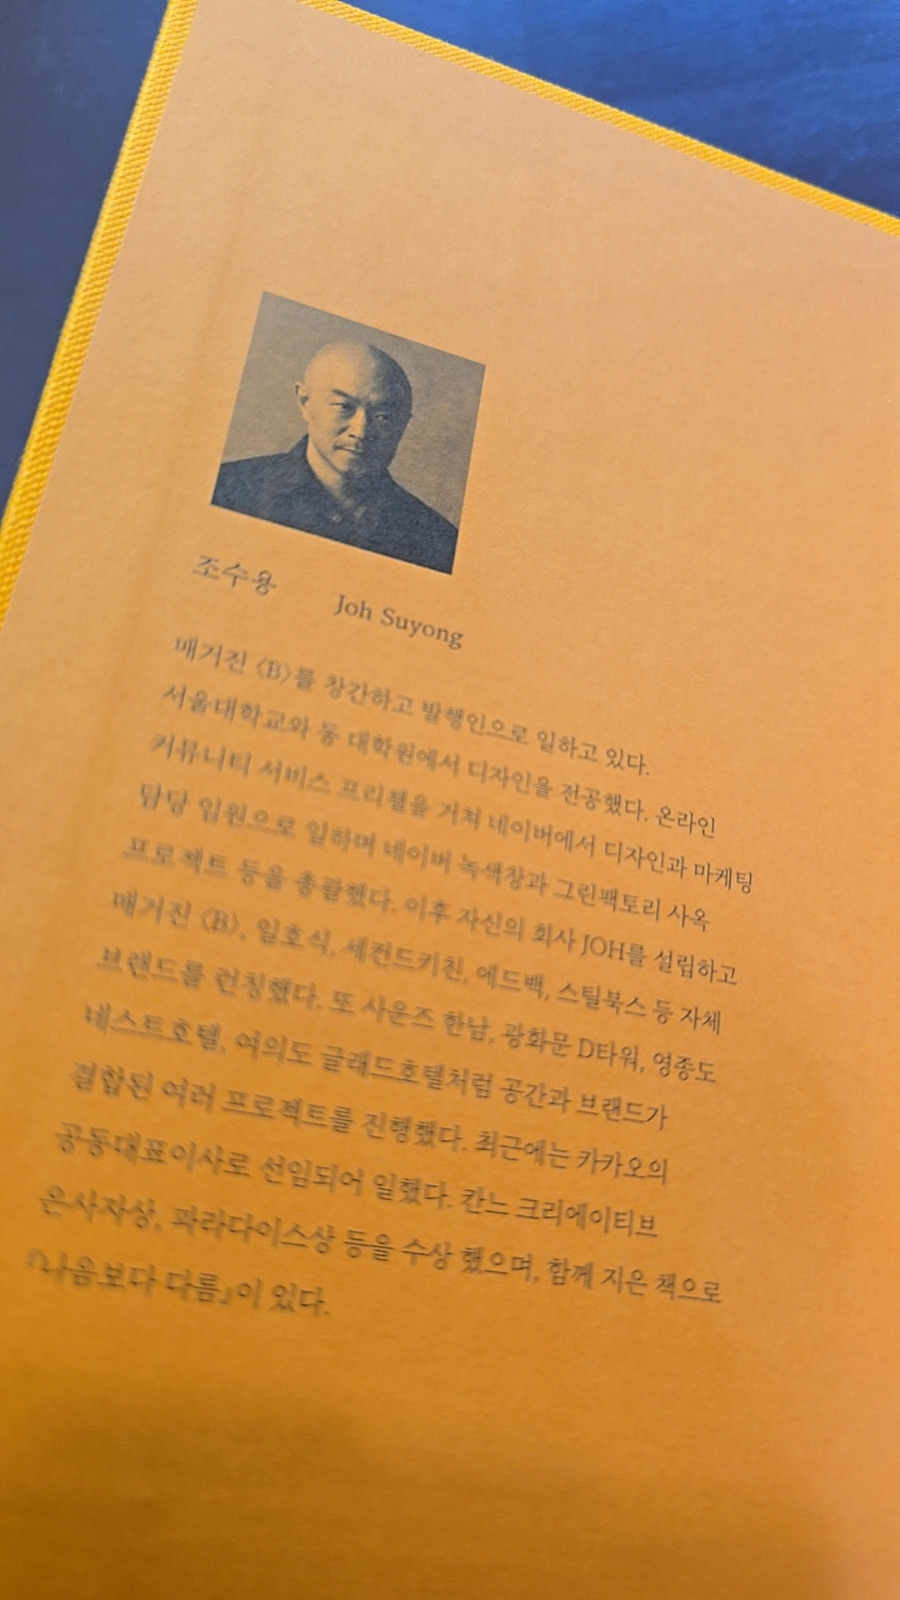 조수용 Joh Suyong
매거진 〈B〉를 창간하고 발행인으로 일하고 있다.
서울대학교와 동 대학원에서 디자인을 전공했다. 온라인
커뮤니티 서비스 프리챌을 거쳐 네이버에서 디자인과 마케팅
담당 임원으로 일하며 네이버 녹색창과 그린팩토리 사옥
프로젝트 등을 총괄했다. 이후 자신의 회사 JOH를 설립하고
매거진 〈B〉, 일호식, 세컨드키친, 에드백, 스틸북스 등 자체
브랜드를 런칭했다. 또 사운즈 한남, 광화문 D타워, 영종도
네스트호텔, 여의도 글래드호텔처럼 공간과 브랜드가
결합된 여러 프로젝트를 진행했다. 최근에는 카카오의
공동대표이사로 선임되어 일했다. 칸느 크리에이티브
은사자상, 파라다이스상 등을 수상 했으며, 함께 지은 책으로
『나음보다 다름』이 있다.